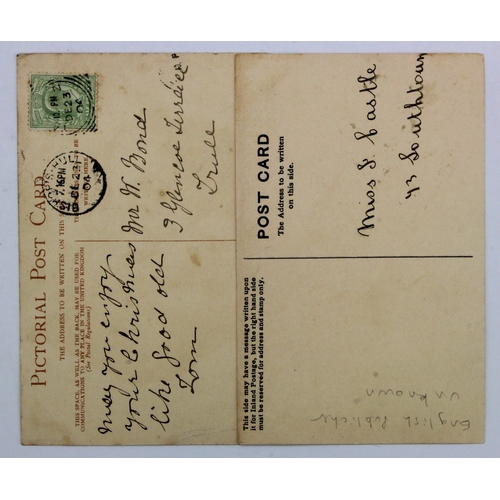 PICTORIAL POST CARD
THE ADDRESS TO BE WRITTEN ON THIS
THIS SPACE, AS WELL AS THE BACK, MAY BE USED FOR
COMMUNICATIONS TO ANY PLACE IN THE UNITED KINGDOM
(See Postal Regulations.)
may you enjoy
your Christmas
like good old
Tom
Mr W. Bond
3 Glencoe Terrace
Trull
DE 23
7.15PM
DE 23
POST CARD
The Address to be written
on this side.
This side may have a message written upon
it for Inland Postage, but the right hand side
must be reserved for address and stamp only.
Miss S Castle
43 Southtown
English Publisher
unknown